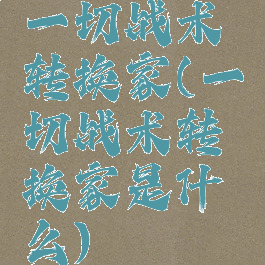 一切战术
转换家(一
切战术转
换家是什
么)